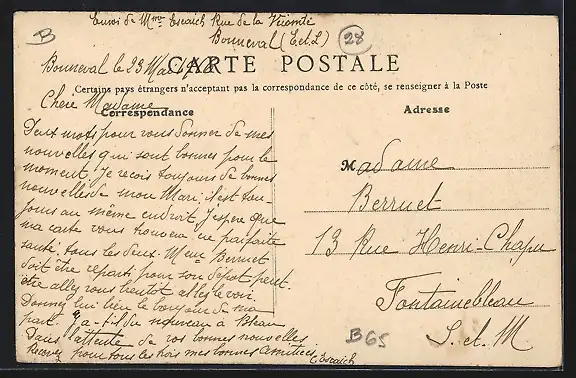 B
Envoi de Mme Escaich Rue de la Vicomté
Bonneval (E et L)
28
Bonneval le 23 Mai
CARTE POSTALE
Certains pays étrangers n'acceptant pas la correspondance de ce côté, se renseigner à la Poste
Chère Madame
Correspondance
Adresse
Deux mots pour vous donner de mes
nouvelles qui sont bonnes pour le
moment, je reçois toujours de bonnes
nouvelles de mon Mari; il est tou-
jours au même endroit j'espère que
ma carte vous trouvera en parfaite
santé tous les deux. Mr Berruet
doit être reparti pour son dépot peut.
être allez vous bientôt allez le voir.
Donnez lui bien le bonjour de ma
part. a-t-il du nouveau à
Dans l'attente de vos bonnes nouvelles
Recevez pour tous les trois mes bonnes amitiées
Escaich
Madame
Berruet
13 Rue Henri-Chapu
Fontainebleau
S. et M.
B65